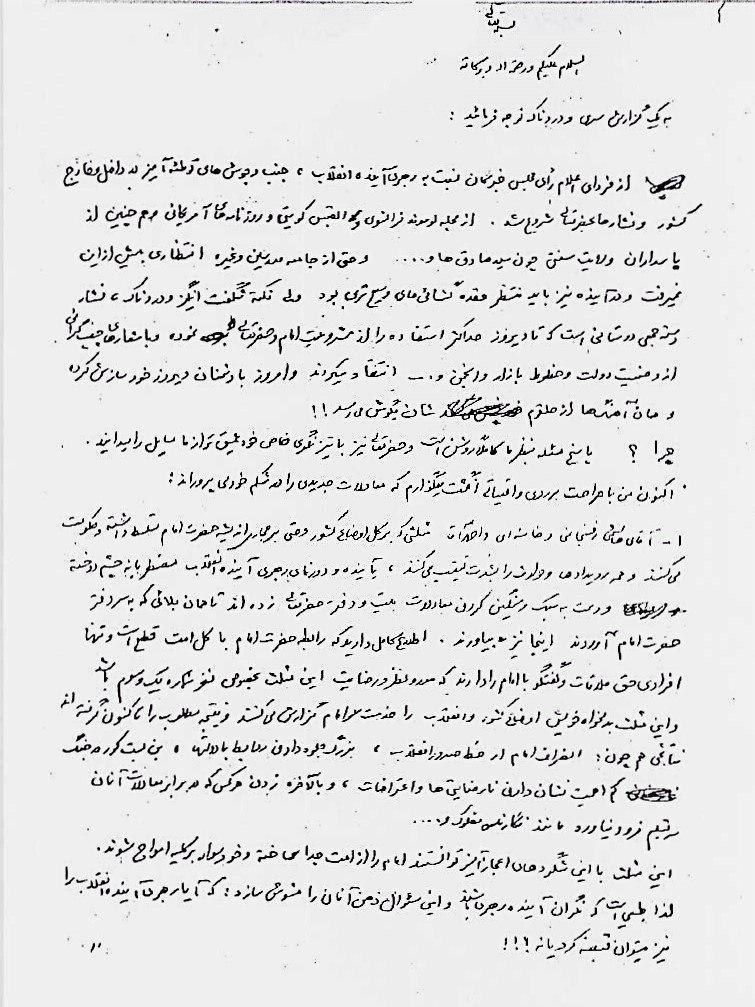 بسمه تعالی
السلام علیکم ورحمة الله وبرکاته
به یک گزارش سری و دردناک توجه فرمائید :
از فردای اعلام رأی مجلس خبرگان نسبت به رهبری آینده انقلاب ، جنب وجوش های توطئه آمیز در داخل و خارج
کشور و فشارها بحضرتعالی شروع شد . از مجله لوموند فرانسوی و القبس کویتی و روزنامه های آمریکائی و هم چنین از
پاسداران ولایت سنتی چون سید صادق ها و .... و حتی از جامعه مدرسین وغیره انتظاری بیش از این
نمیرفت و در آینده نیز باید منتظر عقده گشائی های وسیع تری بود ولی نکته شگفت انگیز و دردناک ، فشار
دسته جمعی دوستانی است که تا دیروز حداکثر استفاده را از مشروعیت امام و حضرتعالی نموده و با شعارهای چپ گرائی
از وضعیت دولت و خطوط بازار و انجمن و ... انتقاد میکردند و امروز با دشمنان دیروز خود سازش کرده
و همان آهنگ ها از حلقوم شان بگوش می رسد !!
چرا ؟ پاسخ مسئله بنظر ما کاملاً روشن است و حضرتعالی نیز با تیزنگری خاص خود عمیق تر از ما مسایل را میدانید .
اکنون من با صراحت بر روی واقعیاتی انگشت میگذارم که معادلات جدیدی را در شکم خود می پروراند :
۱ - آقای هاشمی رفسنجانی و خامنه ای و احمد آقا مثلثی که بر کل اوضاع کشور و حتی بر مجاری اندیشه حضرت امام تسلط داشته و حکومت
می کنند و همه رویدادها و حوادث را بشدت تعقیب می کنند ، به آینده و دورنمای رهبری آینده انقلاب مضطربانه چشم دوخته
و دست به سبک و سنگین کردن معادلات بیت و دفتر حضرتعالی زده اند تا همان بلائی که به سر دفتر
حضرت امام آوردند اینجا نیز بیاورند . اطلاع کامل دارید که رابطه حضرت امام با کل امت قطع است و تنها
افرادی حق ملاقات و گفتگو با امام را دارند که مورد نظر و رضایت این مثلث بخصوص نفر شماره یک و سوم باشد
و این مثلث بدلخواه خویش اوضاع کشور و انقلاب را خدمت امام گزارش می کنند و نتیجه مطلوب را تا کنون گرفته اند
نتایجی هم چون : انحراف امام از خط صدور انقلاب ، بزرگ جلوه دادن روابط بالاتنها ، بن بست کور در جنگ
کم اهمیت نشان دادن نارضایتی ها و اعتراضات ، و بالأخره زدن هرکس که در برابر معادلات آنان
سر تسلیم فرو نیاورد مانند نگارنده مفلوک و ....
این مثلث با این شگردهای اعجازآمیز توانستند امام را از امت جدا ساخته و خود سوار بر کلیه امواج شوند .
لذا طبیعی است که نگران آینده رهبری باشند و این سئوال ذهن آنان را مشوش سازد : که آیا رهبری آینده انقلاب را
نیز میتوان قبضه کرد یا نه ؟!!!